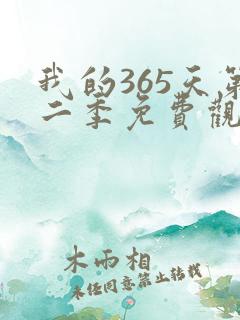 我的365天第
二季免費觀
木雨相
未經同意禁止轉載